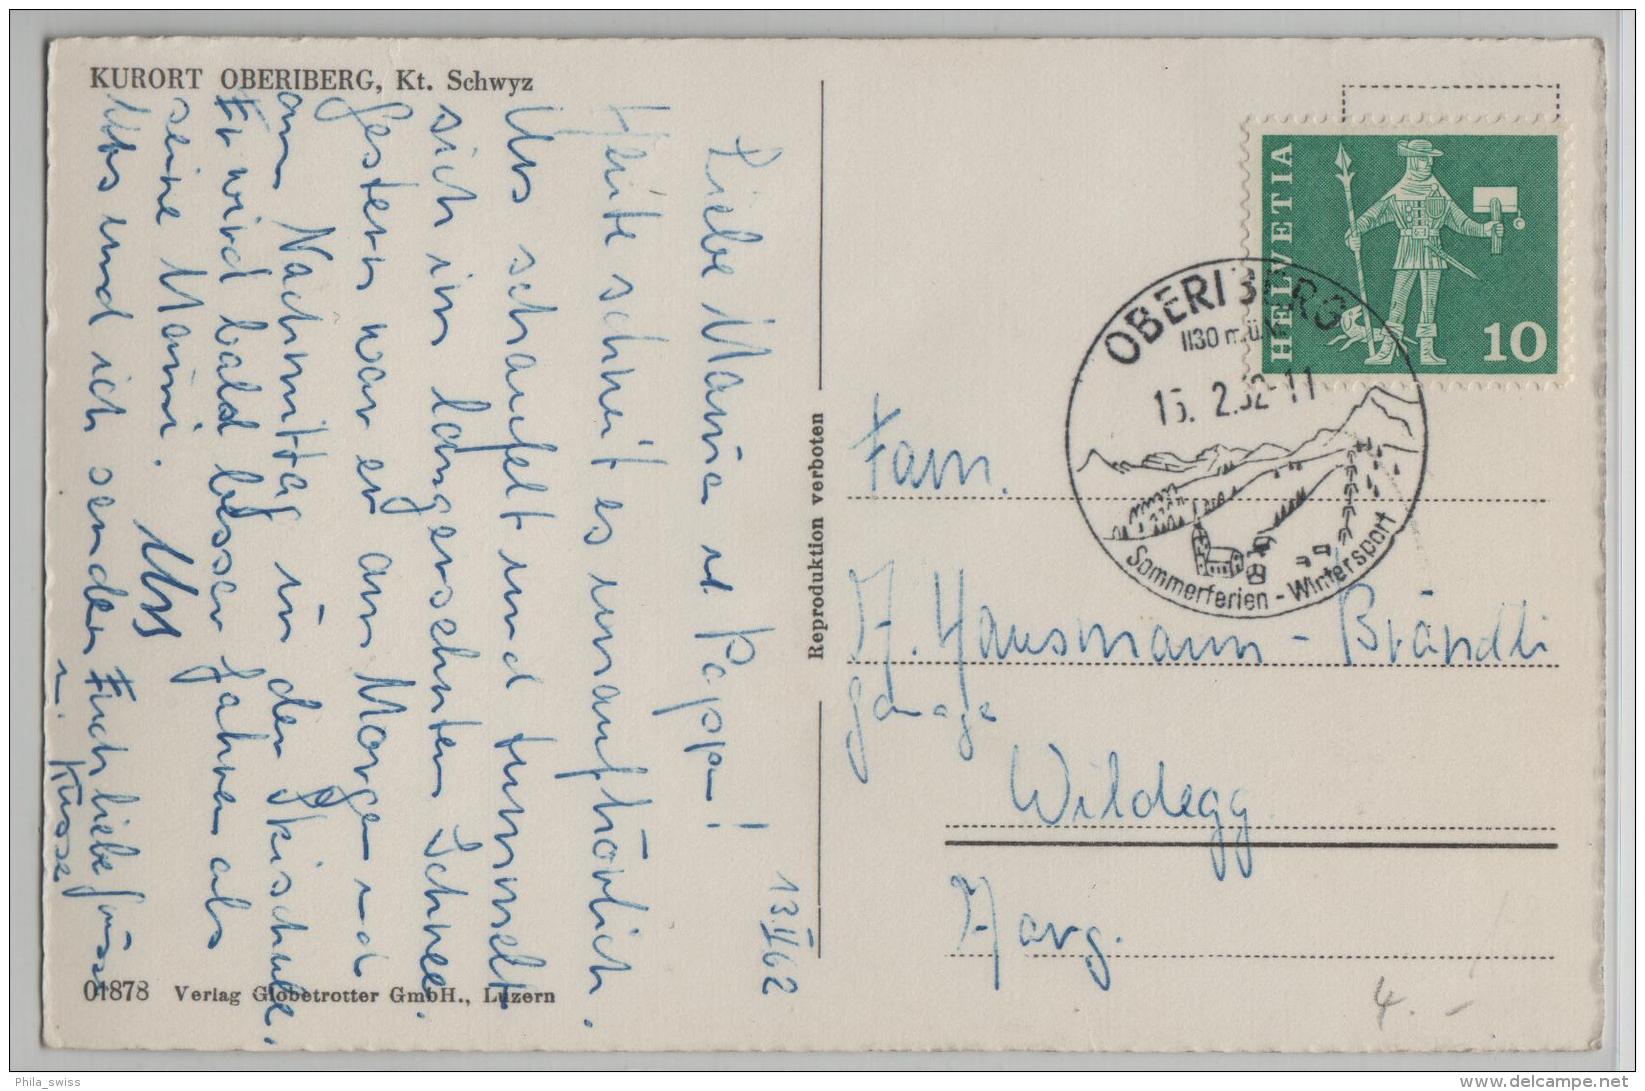 KURORT OBERIBERG, Kt. Schwyz
13.II 62
Liebe Mama u Pappa!
Heute schneit es unaufhörlich.
Urs schaufelt und tummelt
sich im langersehnten Schnee.
Gestern war er am Morgen und
am Nachmittag in der Skischule.
Er wird bald besser fahren als
seine Mami. Urs
Urs und ich senden Euch liebe Grüsse
u. Küsse
01878 Verlag Globetrotter GmbH., Luzern
Reproduktion verboten
HELVETIA
10
OBERIBERG
1130 m.ü.M.
15. 2.62-11
Sommerferien - Wintersport
Fam.
A. Hausmann - Brändli
Garage
Wildegg
Aarg.
4.-
Phila_swiss
www.delcampe.net